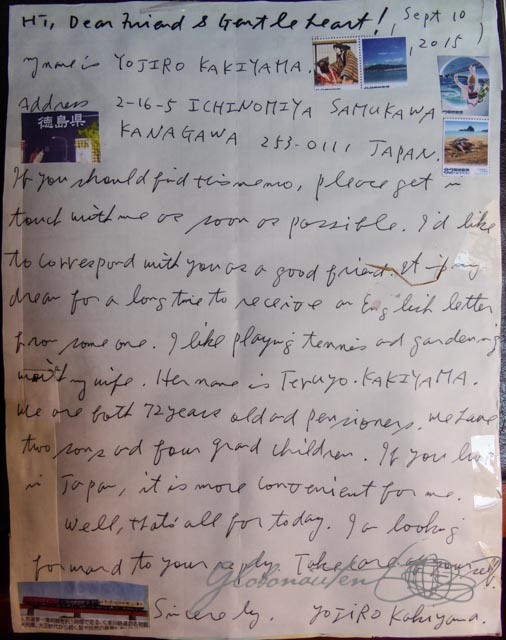 Hi, Dear Friend & Gentle heart! (Sept 10, 2015)
My name is YOJIRO KAKIYAMA.
Address 2-16-5 ICHINOMIYA SAMUKAWA
KANAGAWA 253-0111 JAPAN.
徳島県
If you should find this memo, please get in
touch with me as soon as possible. I'd like
to correspond with you as a good friend. It is my
dream for a long time to receive an English letter
from some one. I like playing tennis and gardening
with my wife. Her name is Teruyo. KAKIYAMA.
We are both 72 years old and pensioners. We have
two sons and four grand children. If you live
in Japan, it is more convenient for me.
Well, that's all for today. I am looking
forward to your reply. Take care of yourself.
globonauten
Sincerely. YOJIRO Kakiyama.